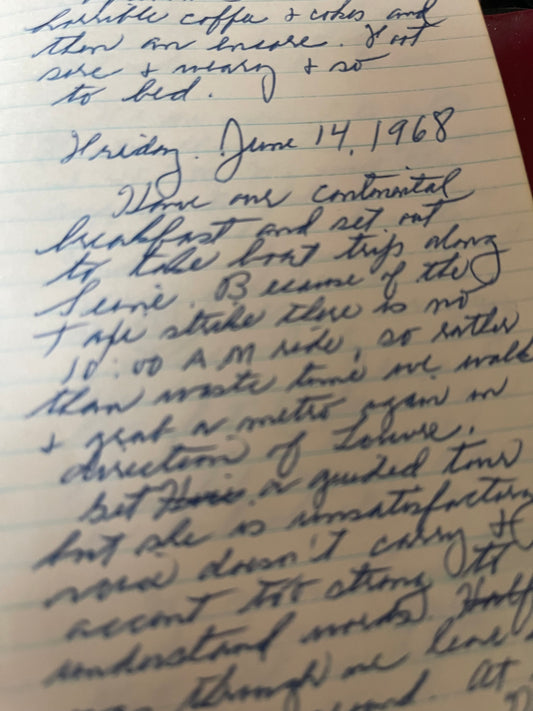 horrible coffee & cokes and
then an encore. Foot
sore & weary & so
to bed.
Friday. June 14, 1968
Have our continental
breakfast and set out
to take boat trip along
Seine. Because of the
strike there is no
10:00 AM ride, so rather
than waste time we walk
& grab a metro again in
direction of Louvre.
Get a guided tour
but she is unsatisfactory
voice doesn't carry &
accent too strong to
understand words. Half
way through we leave
around. At